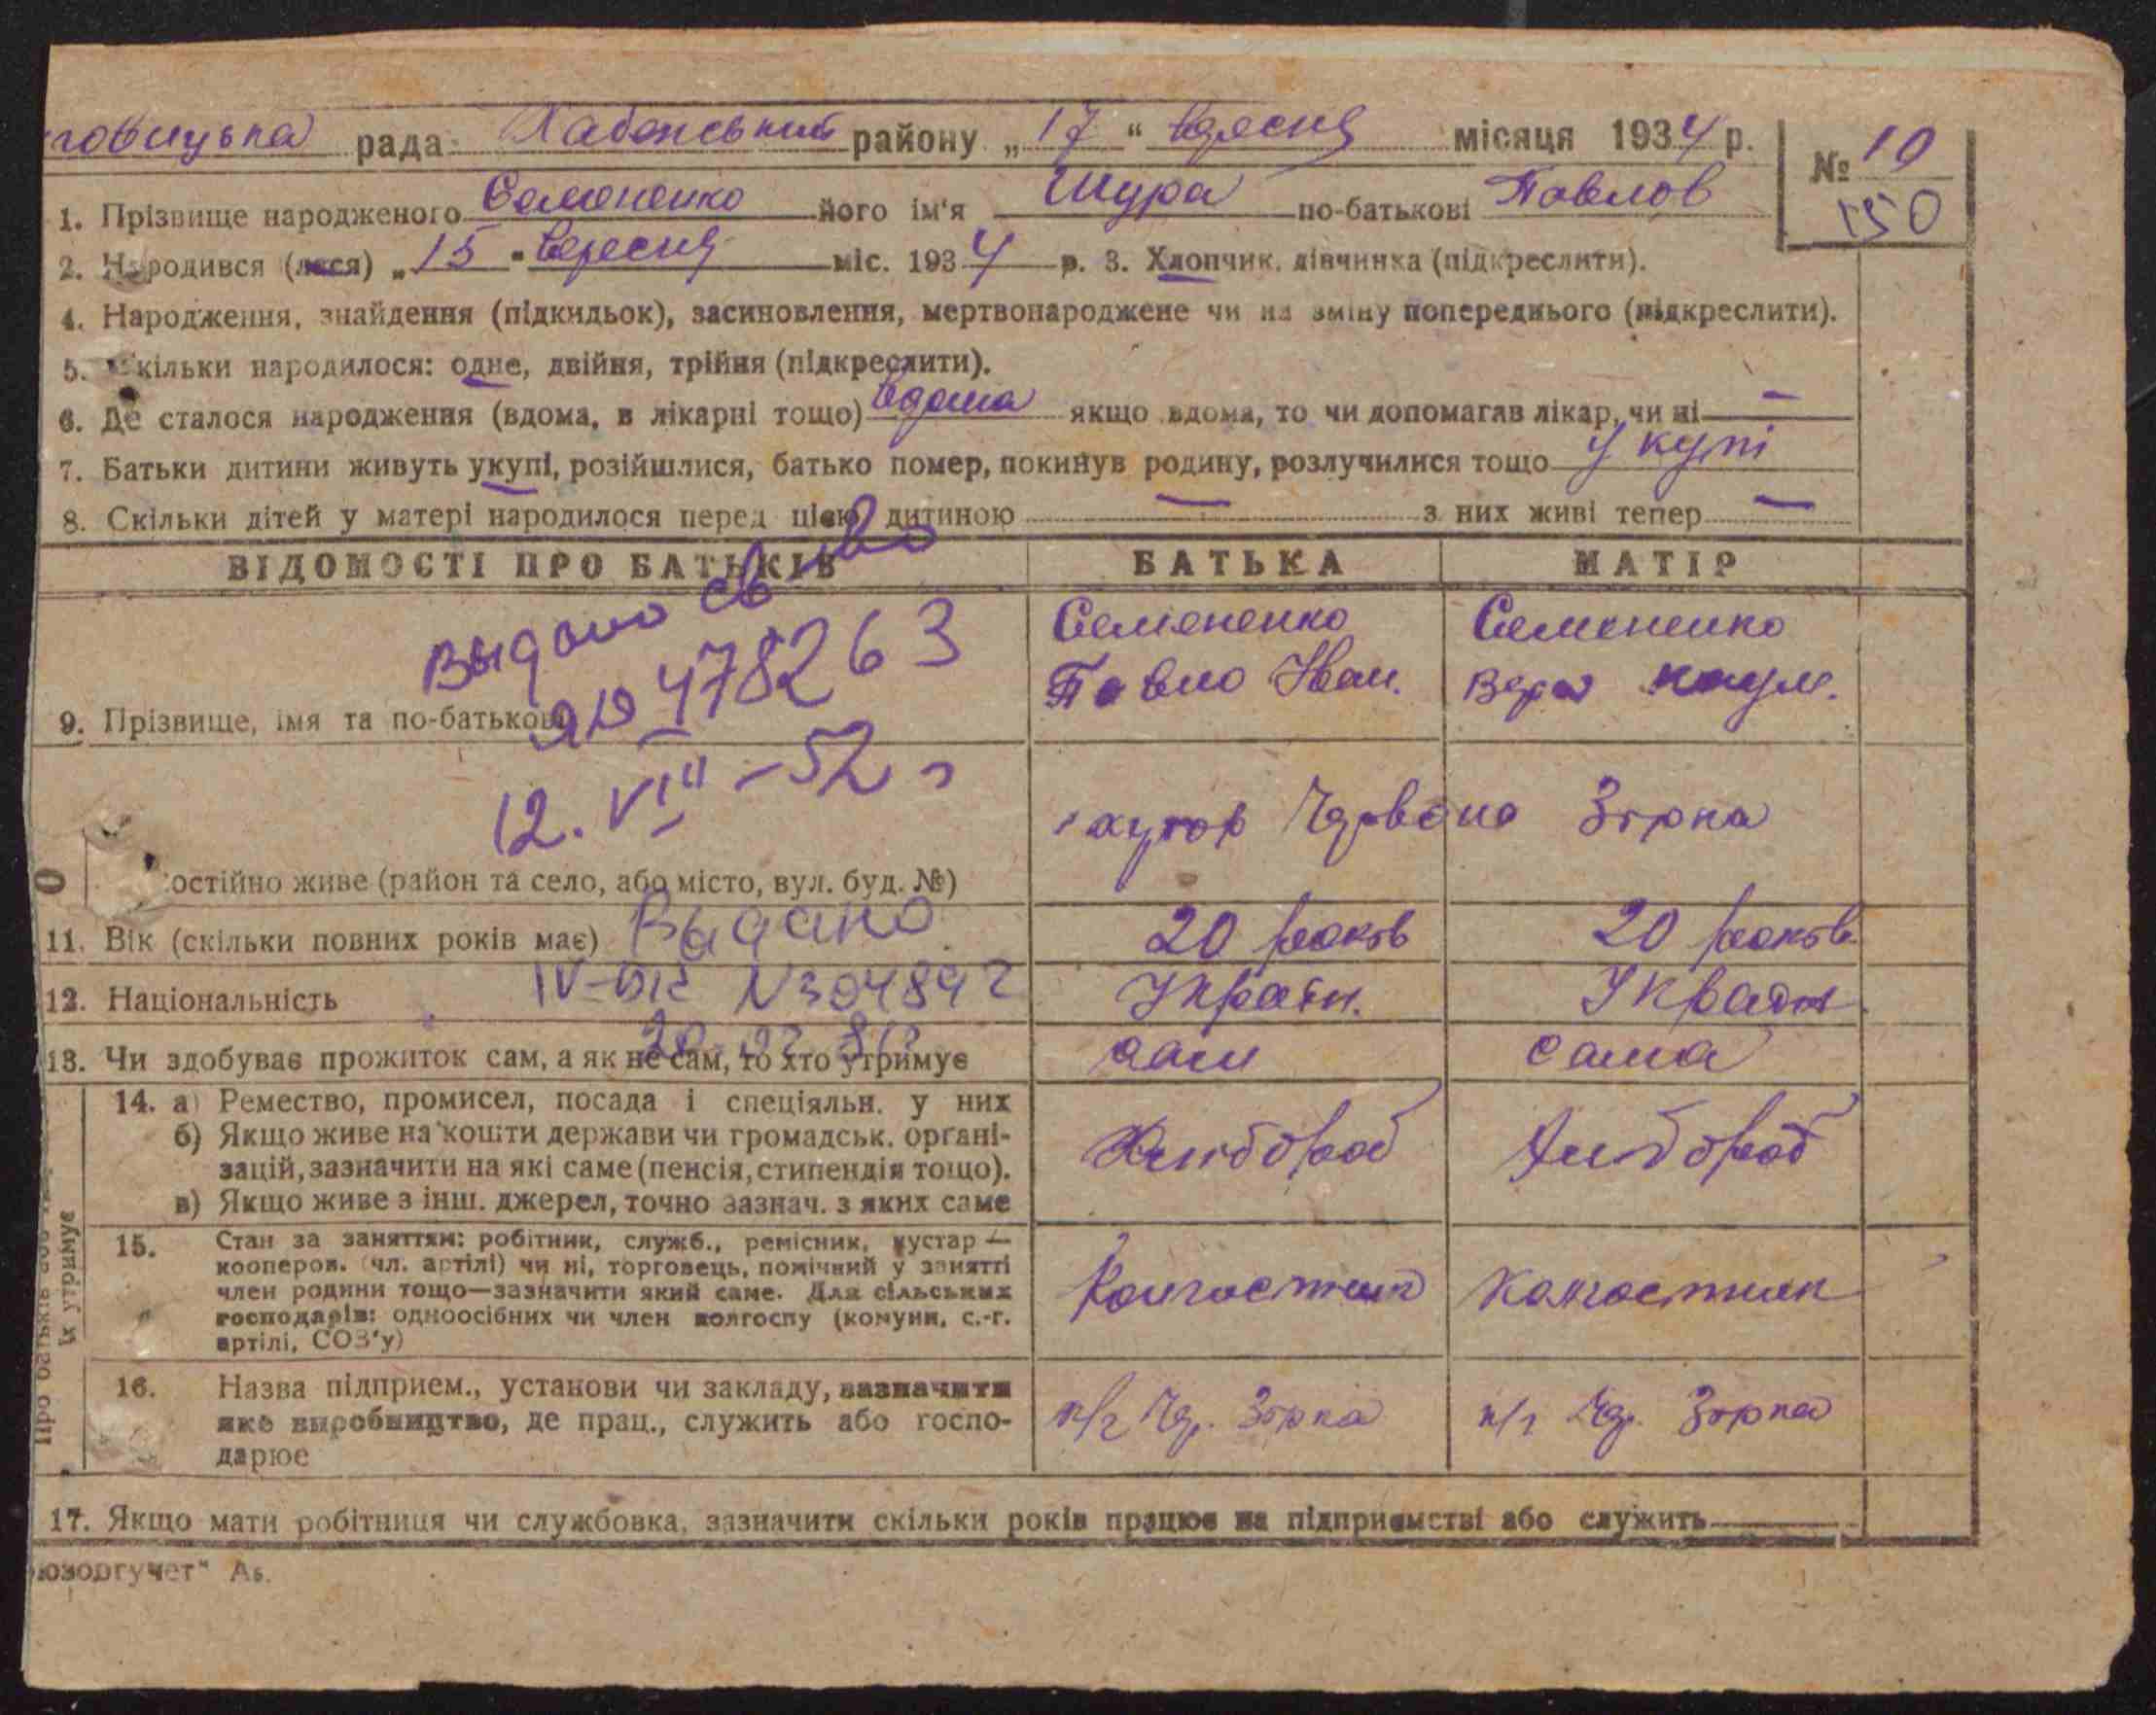 говицька рада Хабенський району „17“ вересня місяця 1934 р. № 10
1. Прізвище народженого Семененко його ім'я Шура по-батькові Павлов 150
2. Народився (лася) „15" вересня міс. 1934 р. 3. Хлопчик, дівчинка (підкреслити).
4. Народження, знайдення (підкидьок), засиновлення, мертвонароджене чи на зміну попереднього (підкреслити).
5. Скільки народилося: одне, двійня, трійня (підкреслити).
6. Де сталося народження (вдома, в лікарні тощо) вдома якщо вдома, то чи допомагав лікар, чи ні —
7. Батьки дитини живуть укупі, розійшлися, батько помер, покинув родину, розлучилися тощо у купі
8. Скільки дітей у матері народилося перед цією дитиною — з них живі тепер —
ВІДОМОСТІ ПРО БАТЬКІВ БАТЬКА МАТІР
Выдано св-во
478263
12. VIII – 52 г
9. Прізвище, імя та по-батькові
Семененко Павло Іван.
Семененко Вера Наум.
постійно живе (район та село, або місто, вул. буд. №) хутор Червона Зорка
11. Вік (скільки повних років має) 20 років 20 років
Выдано
12. Національність Україн. Україн
IV-БК N304892
13. Чи здобуває прожиток сам, а як не сам, то хто утримує сам сама
14. а) Ремество, промисел, посада і спеціяльн. у них
б) Якщо живе на кошти держави чи громадськ. органі-
зацій, зазначити на які саме (пенсія, стипендія тощо).
в) Якщо живе з інш. джерел, точно зазнач. з яких саме
Хлибороб Хлибороб
15. Стан за заняттям: робітник, служб., ремісник, кустар —
кооперов. (чл. артілі) чи ні, торговець, помічний у занятті
член родини тощо—зазначити який саме. Для сільських
господарів: одноосібних чи член колгоспу (комуни, с.-г.
артілі, СОЗ'у)
Колгоспник Колгоспник
16. Назва підприєм., установи чи закладу, зазначити
яке виробництво, де прац., служить або госпо-
дарює
к/г Чер. Зорка к/г Чер. Зорка
Про батьків або
їх утримує
17. Якщо мати робітниця чи службовка, зазначити скільки років працює на підприємстві або служить —
юзоргучет"